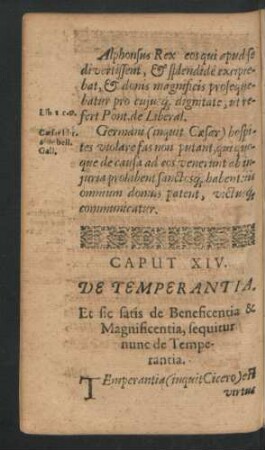 Alphonsus Rex eos qui apud se
divertissent, & splendidè excipie-
bat, & donis magnificis proseque-
batur pro cujusq; dignitate, ut re-
fert Pont. de Liberal.
Germani (inquit Cæsar) hospi-
tes violare fas non putant, qui quo-
que de causa ad eos venerunt ab in-
juria prohibent sanctosq; habent: iis
omnium domus patent, victusq;
communicatur.
CAPUT XIV.
DE TEMPERANTIA.
Et sic satis de Beneficentia &
Magnificentia, sequitur
nunc de Tempe-
rantia.
TEmperantia (inquit Cicero) est
virtus